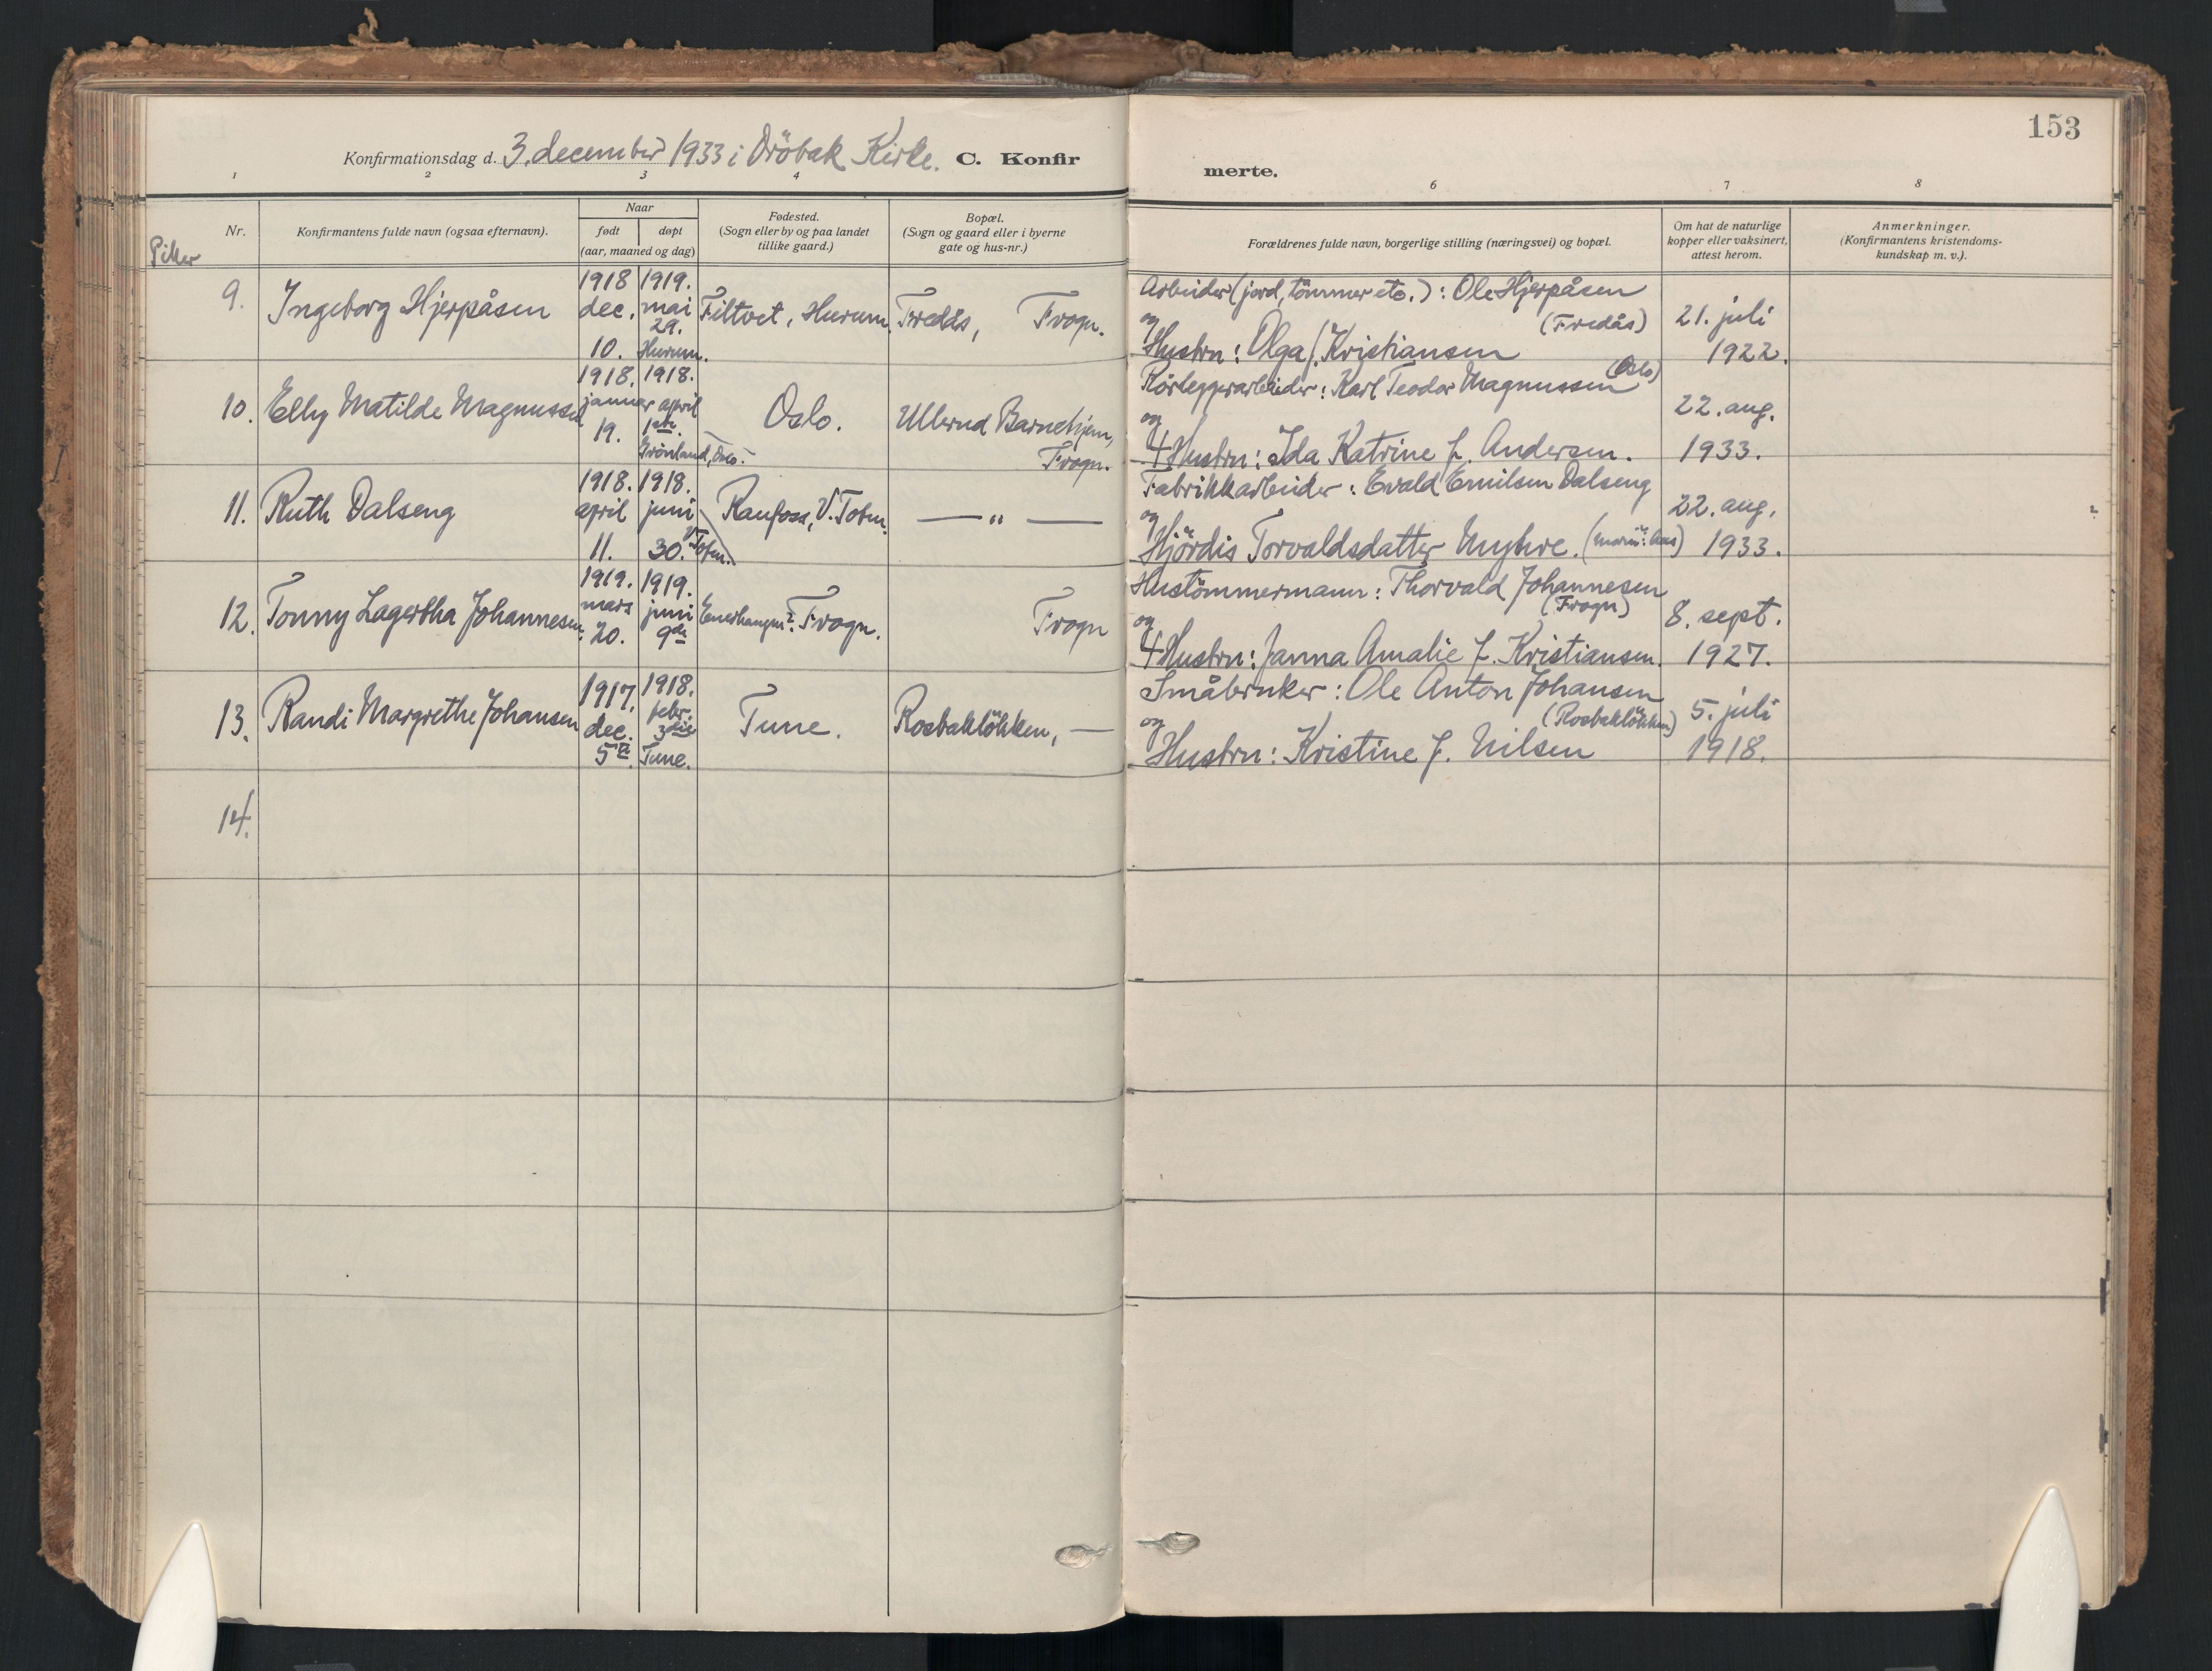 153
Konfirmationsdag d. 3. december 1933 i Dröbak Kirke. C. Konfir
merte.
1 2 3 4 6 7 8
Nr.
Konfirmantens fulde navn (ogsaa efternavn).
Naar
født døpt
(aar, maaned og dag)
Fødested.
(Sogn eller by og paa landet
tillike gaard.)
Bopæl.
(Sogn og gaard eller i byerne
gate og hus-nr.)
Forældrenes fulde navn, borgerlige stilling (næringsvei) og bopæl.
Om hat de naturlige
kopper eller vaksinert,
attest herom.
Anmerkninger.
(Konfirmantens kristendoms-
kundskap m. v.).
Piker
9. Ingeborg Hjerpåsen
1918
dec.
10.
1919.
mai
29.
Hurum.
Filtvet, Hurum.
Fredås, Frogn.
Arbeider (jord, tömmer etc.): Ole Hjerpåsen
og (Fredås)
Hustru: Olga f. Kristiansen
21. juli
1922.
10. Elly Matilde Magnussen
1918.
januar
19.
1918.
april
1ste.
Grönland, Oslo.
Oslo.
Ullerud Barnehjem,
Frogn.
Rörleggerarbeider: Karl Teodor Magnussen (Oslo)
og
† Hustru: Ida Katrine f. Andersen.
22. aug.
1933.
11. Ruth Dalseng
1918.
april
11.
1918.
juni
30.
V. Toten.
Raufoss, V. Toten.
— " —
Fabrikkarbeider: Evald Emilsen Dalseng
og
Hjördis Torvaldsdatter Myhre.
22. aug.
1933.
12. Tonny Lagertha Johannesen.
1919.
mars
20.
1919.
juni
9de
Frogn.
Frogn
Hustömmermann: Thorvald Johannesen
og (Frogn)
† Hustru: Janna Amalie f. Kristiansen.
8. sept.
1927.
13. Randi Margrethe Johansen
1917.
dec.
5te.
1918.
febr.
3die
Tune.
Tune.
Rosbaklökken, —
Småbruker: Ole Anton Johansen
og (Rosbaklökken)
Hustru: Kristine f. Nilsen
5. juli
1918.
14.